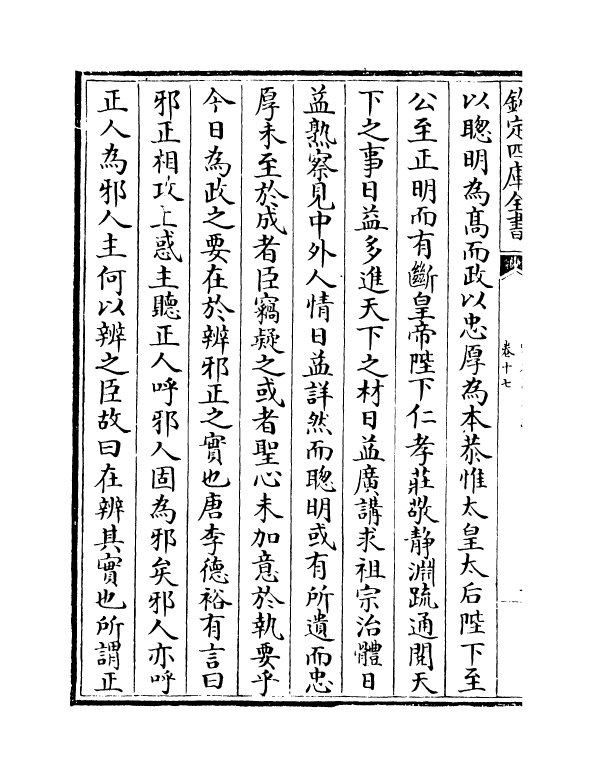 欽定四庫全書
卷十七
以聰明為髙而政以忠厚為本恭惟太皇太后陛下至
公至正明而有斷皇帝陛下仁孝莊敬静淵疏通閱天
下之事日益多進天下之材日益廣講求祖宗治體日
益熟察見中外人情日益詳然而聰明或有所遺而忠
厚未至於成者臣竊疑之或者聖心未加意於執要乎
今日為政之要在於辨邪正之實也唐李德裕有言曰
邪正相攻上惑主聽正人呼邪人固為邪矣邪人亦呼
正人為邪人主何以辨之臣故曰在辨其實也所謂正